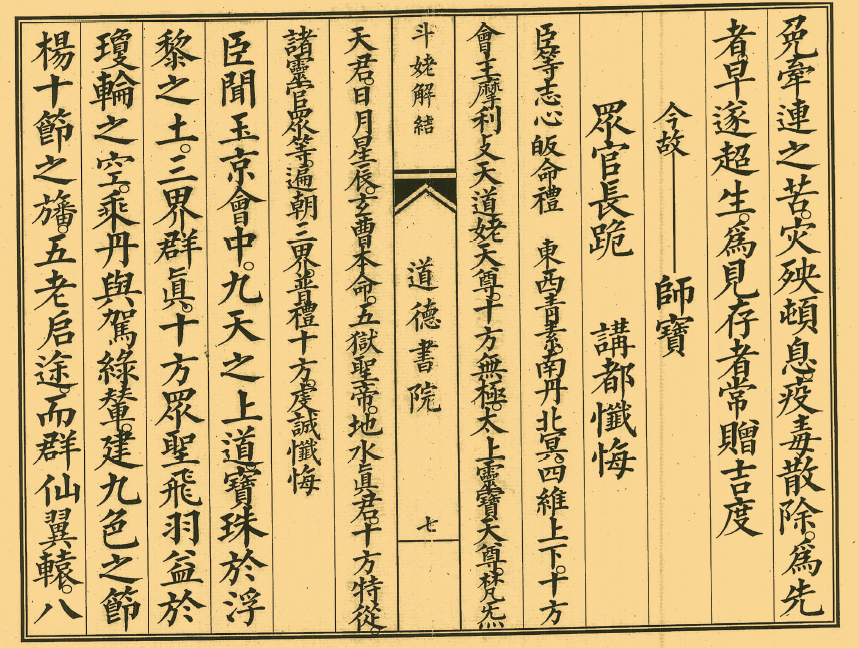 免牽連之苦。灾殃頓息。疫毒散除。為先
者。早遂超生。為見存者常贈吉度
今故——師寶
眾官長跪　講都懺悔
臣等志心皈命禮　東西青素。南丹北冥。四維上下。十方
會主摩利支天道姥天尊。十方無極。太上靈寶天尊。梵炁
斗姥解結
道德書院
七
天君。日月星辰。玄曹本命。五嶽聖帝。地水真君。十方特從。
諸靈官眾等。遍朝三界。普禮十方。虔誠懺悔
臣聞玉京會中。九天之上道。寶珠於浮
黎之土。三界群真。十方眾聖飛羽盆於
瓊輪之空。乘丹輿駕綠輦。建九色之節
楊十節之旛。五老启途。而群仙翼轅。八